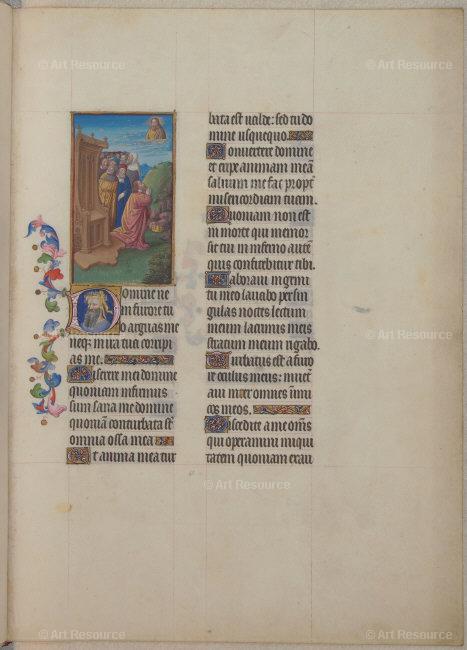 © Art Resource
© Art Resource
Domine ne
in furore tu
o arguas me
neq; in ira tua corripi
as me.
Miserere mei domine
quoniam infirmus
sum sana me domine
quoniā conturbata st̄
omnia ossa mea
Et anima mea tur
bata est ualde: sed tu do
mine usquequo.
Conuertere domine
et eripe animam meā
saluum me fac propt̄
misericordiam tuam.
Quoniam non est
in morte qui memor
sit tui in inferno autē
quis confitebitur tibi.
Laboraui in gemi
tu meo lauabo per sin
gulas noctes lectum
meum lacrimis meis
stratum meum rigabo.
Turbatus est a furo
re oculus meus:
aui inter omnes inimi
cos meos.
Discedite a me om̄s
qui operamini iniqui
tatem quoniam exau
© Art Resource
© Art Resource
© Art Resource
© Art Resource